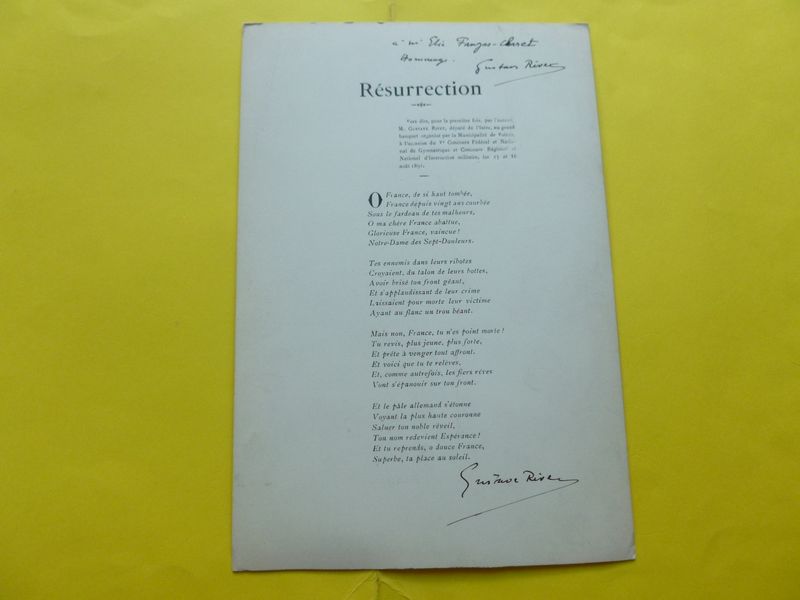 à Mr Elie
Hommage.
Gustave Rivet
Résurrection
Vers dits, pour la première fois, par l'auteur,
M. Gustave Rivet, député de l'Isère, au grand
banquet organisé par la Municipalité de
à l'occasion du Ve Concours Fédéral et Natio-
nal de Gymnastique et Concours Régional et
National d'Instruction militaire, les 15 et 16
août 1891.
O France, de si haut tombée,
France depuis vingt ans courbée
Sous le fardeau de tes malheurs,
O ma chère France abattue,
Glorieuse France, vaincue !
Notre-Dame des Sept-Douleurs.
Tes ennemis dans leurs ribotes
Croyaient, du talon de leurs bottes,
Avoir brisé ton front géant,
Et s'applaudissant de leur crime
Laissaient pour morte leur victime
Ayant au flanc un trou béant.
Mais non, France, tu n'es point morte !
Tu revis, plus jeune, plus forte,
Et prête à venger tout affront.
Et voici que tu te relèves,
Et, comme autrefois, les fiers rêves
Vont s'épanouir sur ton front.
Et le pâle allemand s'étonne
Voyant la plus haute couronne
Saluer ton noble réveil,
Ton nom redevient Espérance !
Et tu reprends, o douce France,
Superbe, ta place au soleil.
Gustave Rivet